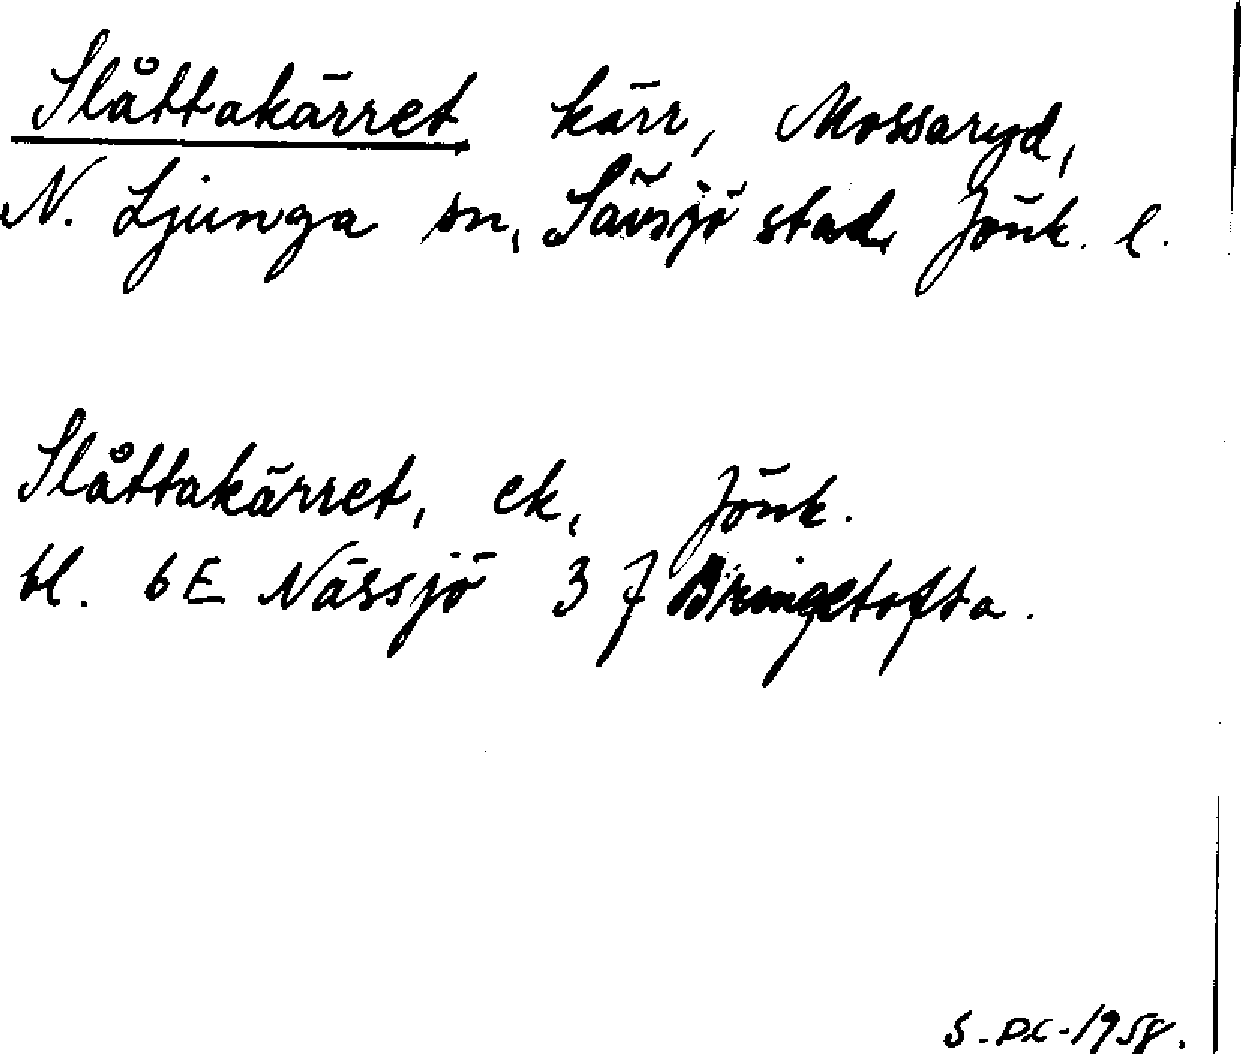 Slåttakärret kärr, Mossaryd,
N. Ljunga sn, Sävsjö stad, Jönk. l.
Slåttakärret, ek, Jönk.
bl. 6E Nässjö 3 f Bringetofta.
5-DC-1958.